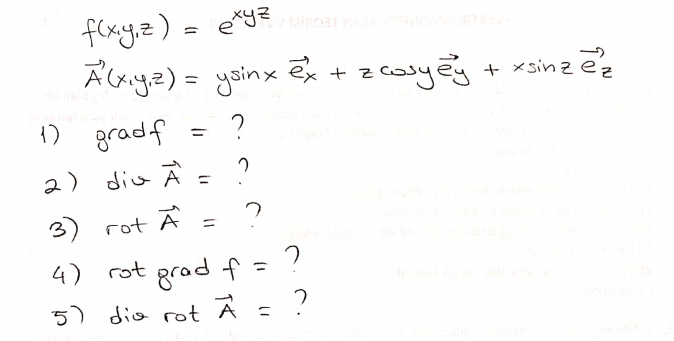 f(x,y,z) = e^xyz
A⃗(x,y,z) = ysinx e⃗x + z cosy e⃗y + x sinz e⃗z
1) gradf = ?
2) div A⃗ = ?
3) rot A⃗ = ?
4) rot grad f = ?
5) div rot A⃗ = ?